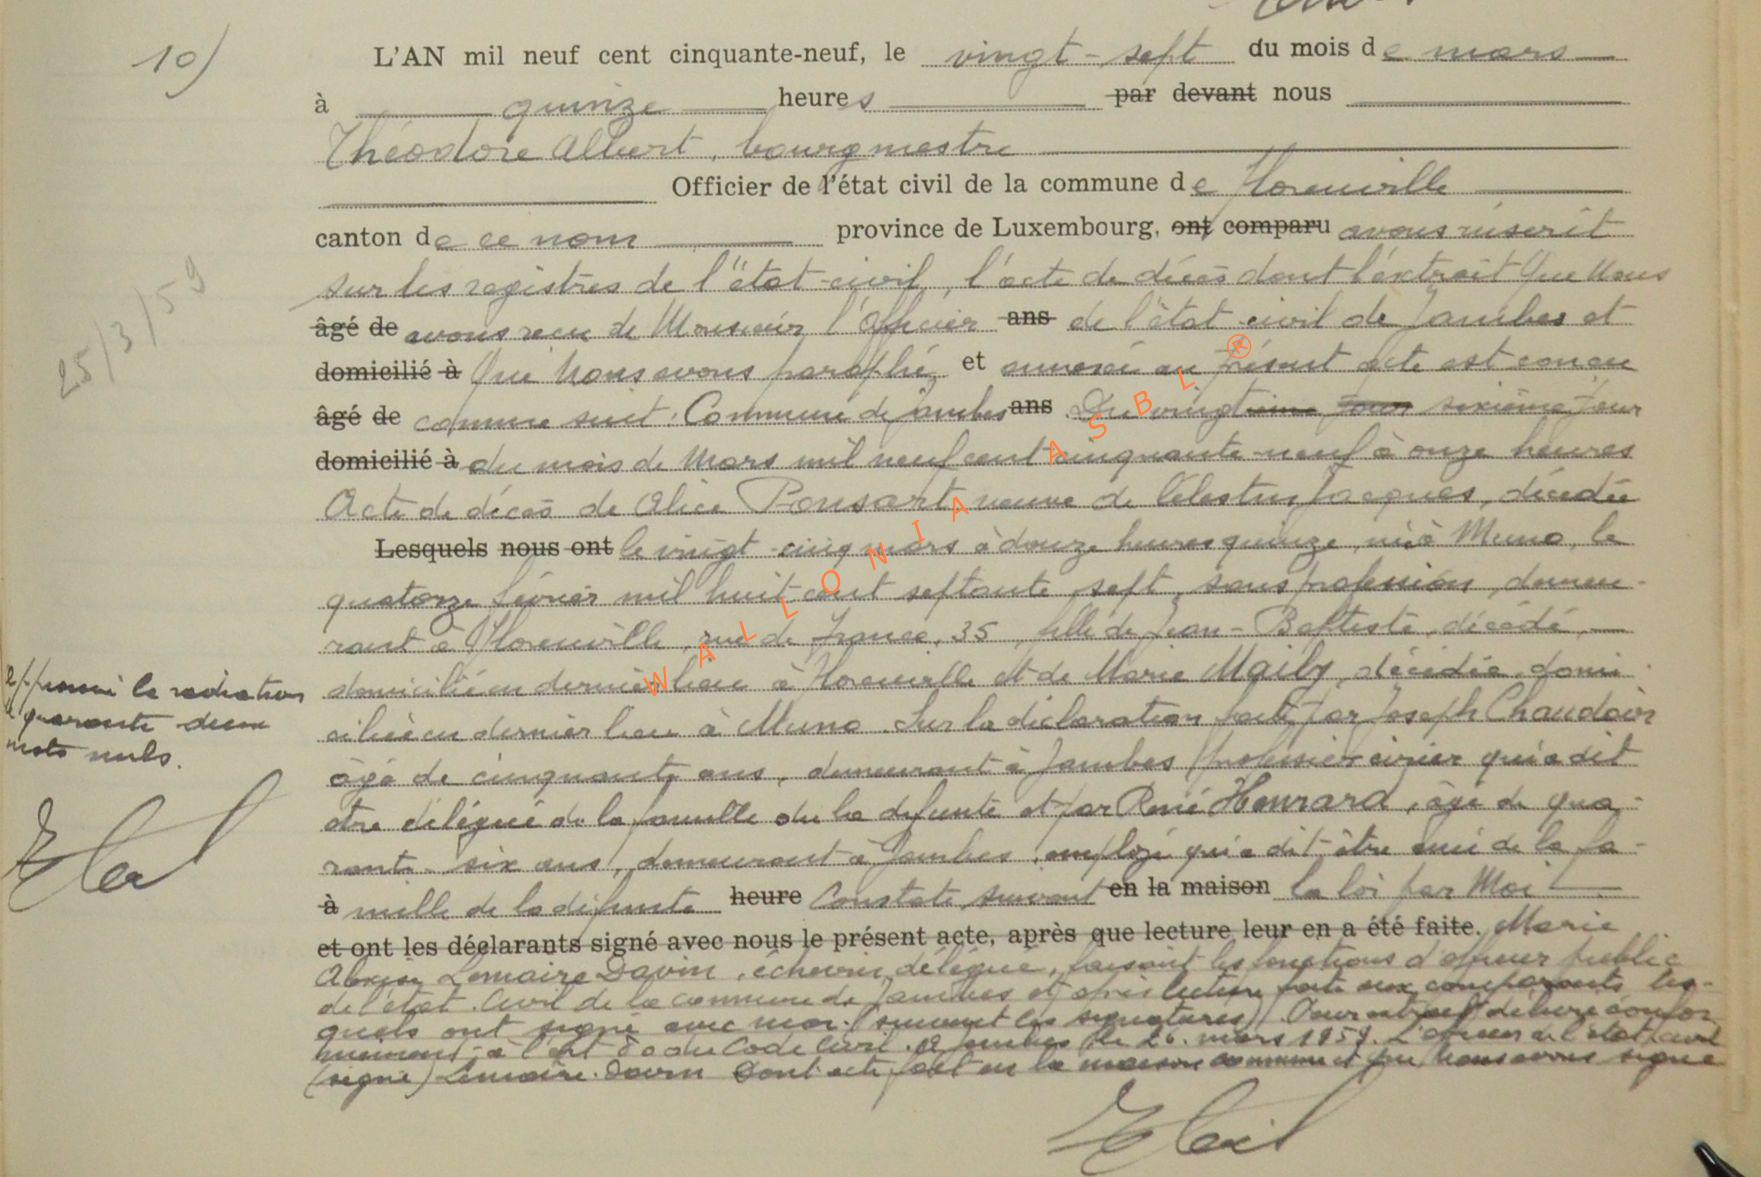 10)
L'AN mil neuf cent cinquante-neuf, le vingt-sept du mois de mars
à quinze heures par devant nous
Théodore Albert, bourgmestre
Officier de l'état civil de la commune de Florenville
canton de ce nom province de Luxembourg, ont comparu avons inscrit
sur les registres de l'état-civil, l'acte de décès dont l'extrait que Nous
25/3/59
âgé de avons reçu de Monsieur l'Officier ans de l'état civil de Jambes et
domicilié à que Nous avons paraphé et annexé au présent acte est conçu
âgé de comme suit: Commune de Jambes ans Du vingt sixième jour
domicilié à du mois de Mars mil neuf cent cinquante-neuf à onze heures
Acte de décès de Alice Ponsart, veuve de Célestin Jacques, décédée
Lesquels nous ont le vingt-cinq mars à douze heures quinze, née à Muno, le
quatorze février mil huit cent septante sept, sans profession, demeu-
rant à Florenville, rue de France, 35, fille de Jean-Baptiste, décédé,
domicilié en dernier lieu à Florenville et de Marie Mailly, décédée, domi
ciliée en dernier lieu à Muno. Sur la déclaration faite par Joseph Chaudoir
la radiation
quarante deux
mots nuls.
âgé de cinquante ans, demeurant à Jambes, qui a dit
être délégué de la famille de la défunte et par René Henrard, âgé de qua-
rante-six ans, demeurant à Jambes, employé qui a dit être ami de la fa-
à mille de la défunte heure Constaté suivant en la maison la loi par Moi
et ont les déclarants signé avec nous le présent acte, après que lecture leur en a été faite. Marie
Lemaire Davin, échevin délégué, faisant les fonctions d'officier public
de l'état-civil de la commune de Jambes et après lecture faite aux comparants les-
quels ont signé avec moi. (suivent les signatures) Pour extrait délivré confor
mément à l'art du Code Civil. A Jambes le 26 mars 1959. L'officier de l'état civil
(signé) Lemaire-Davin Dont acte fait en la maison commune et que Nous avons signé
WALLONIA ASBL ®